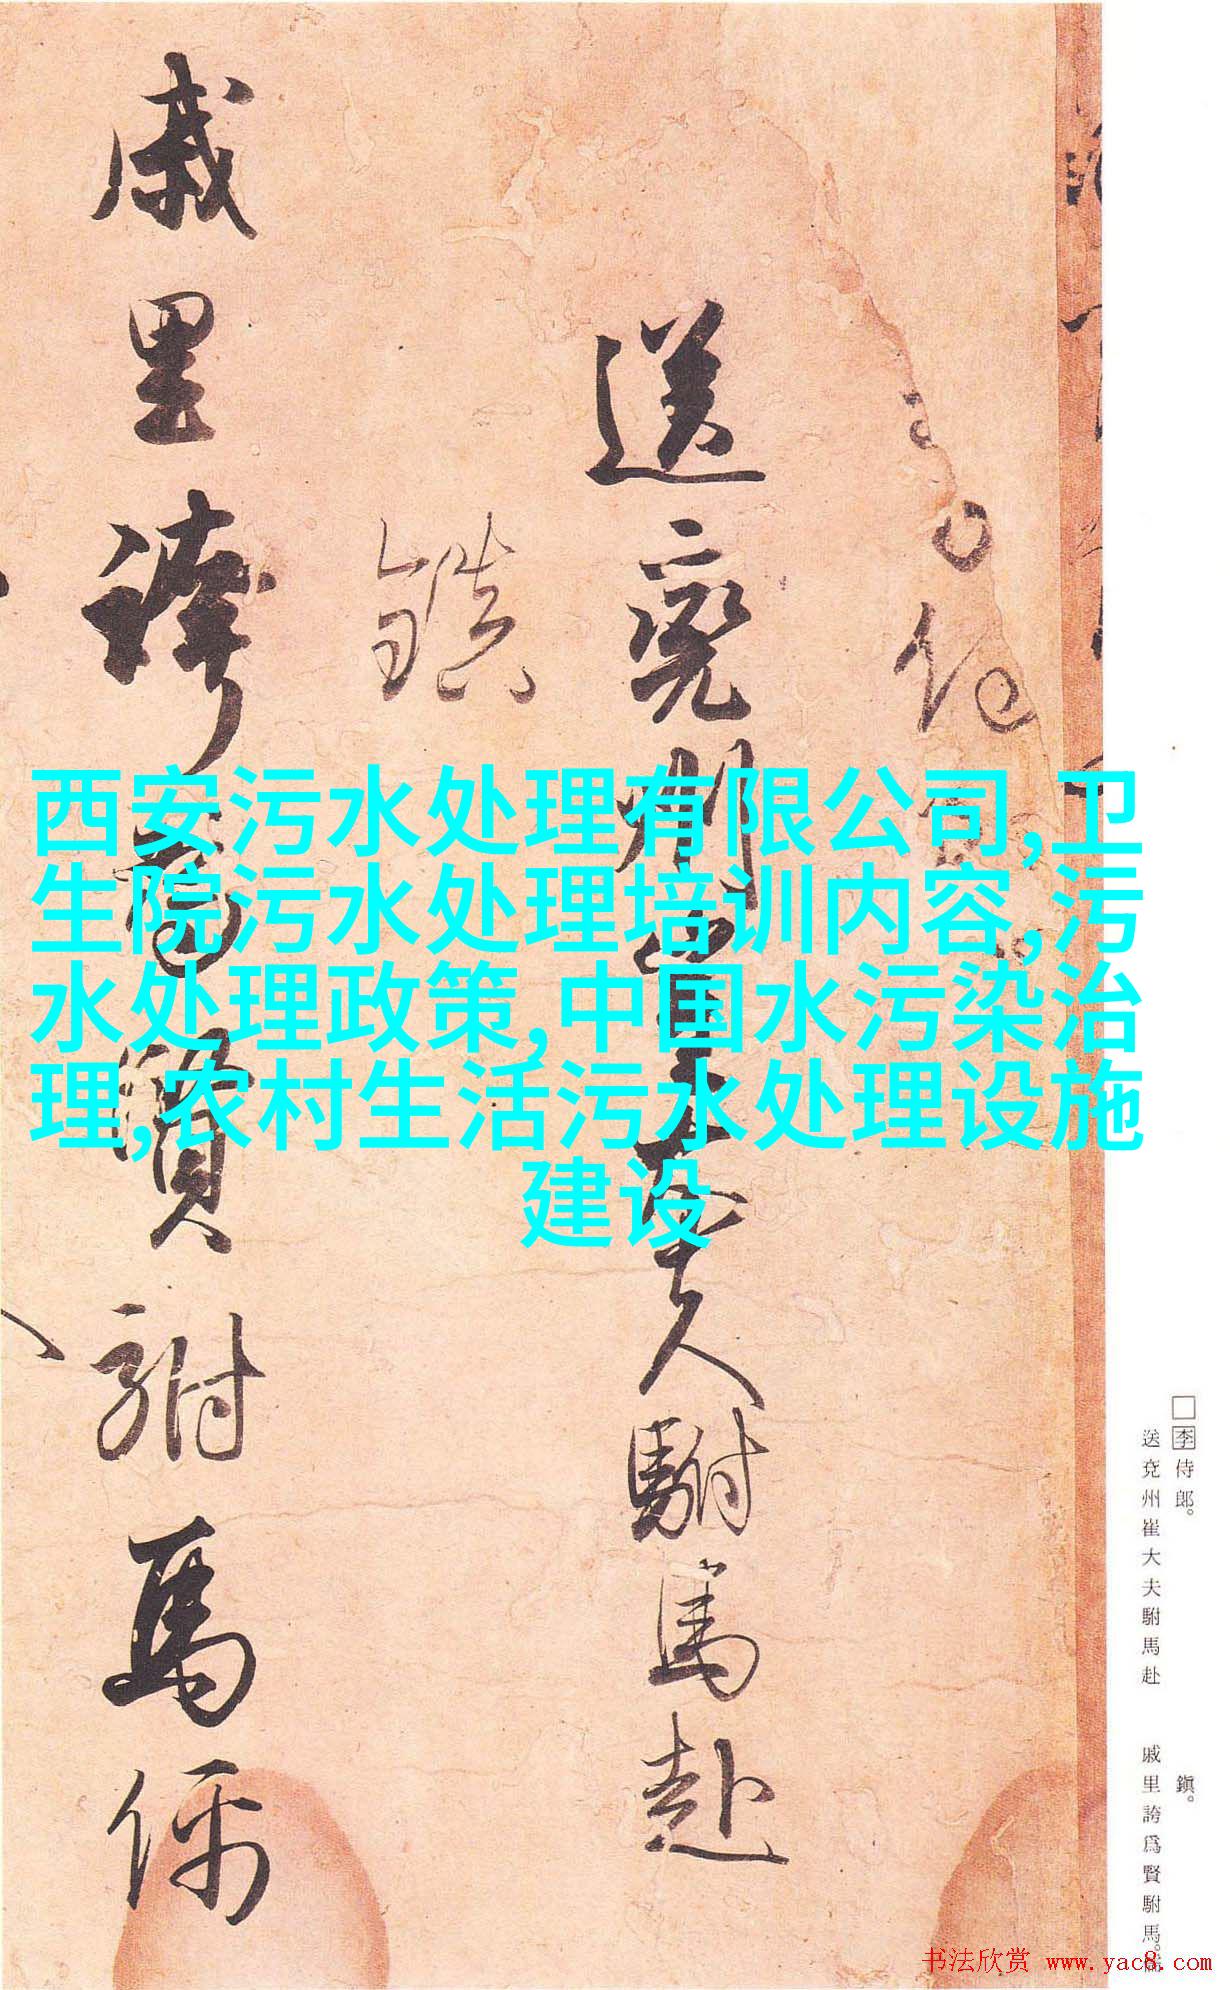 送兖州崔大夫駙馬赴
鎮
戚里誇為賢駙馬儒
西安污水处理有限公司,卫
生院污水处理培训内容,污
水处理政策,中国水污染治
理,农村生活污水处理设施
建设
□李侍郎。
送兖州崔大夫駙馬赴
鎮。
戚里誇爲賢駙馬。儒
书法欣赏 www.yac8.com